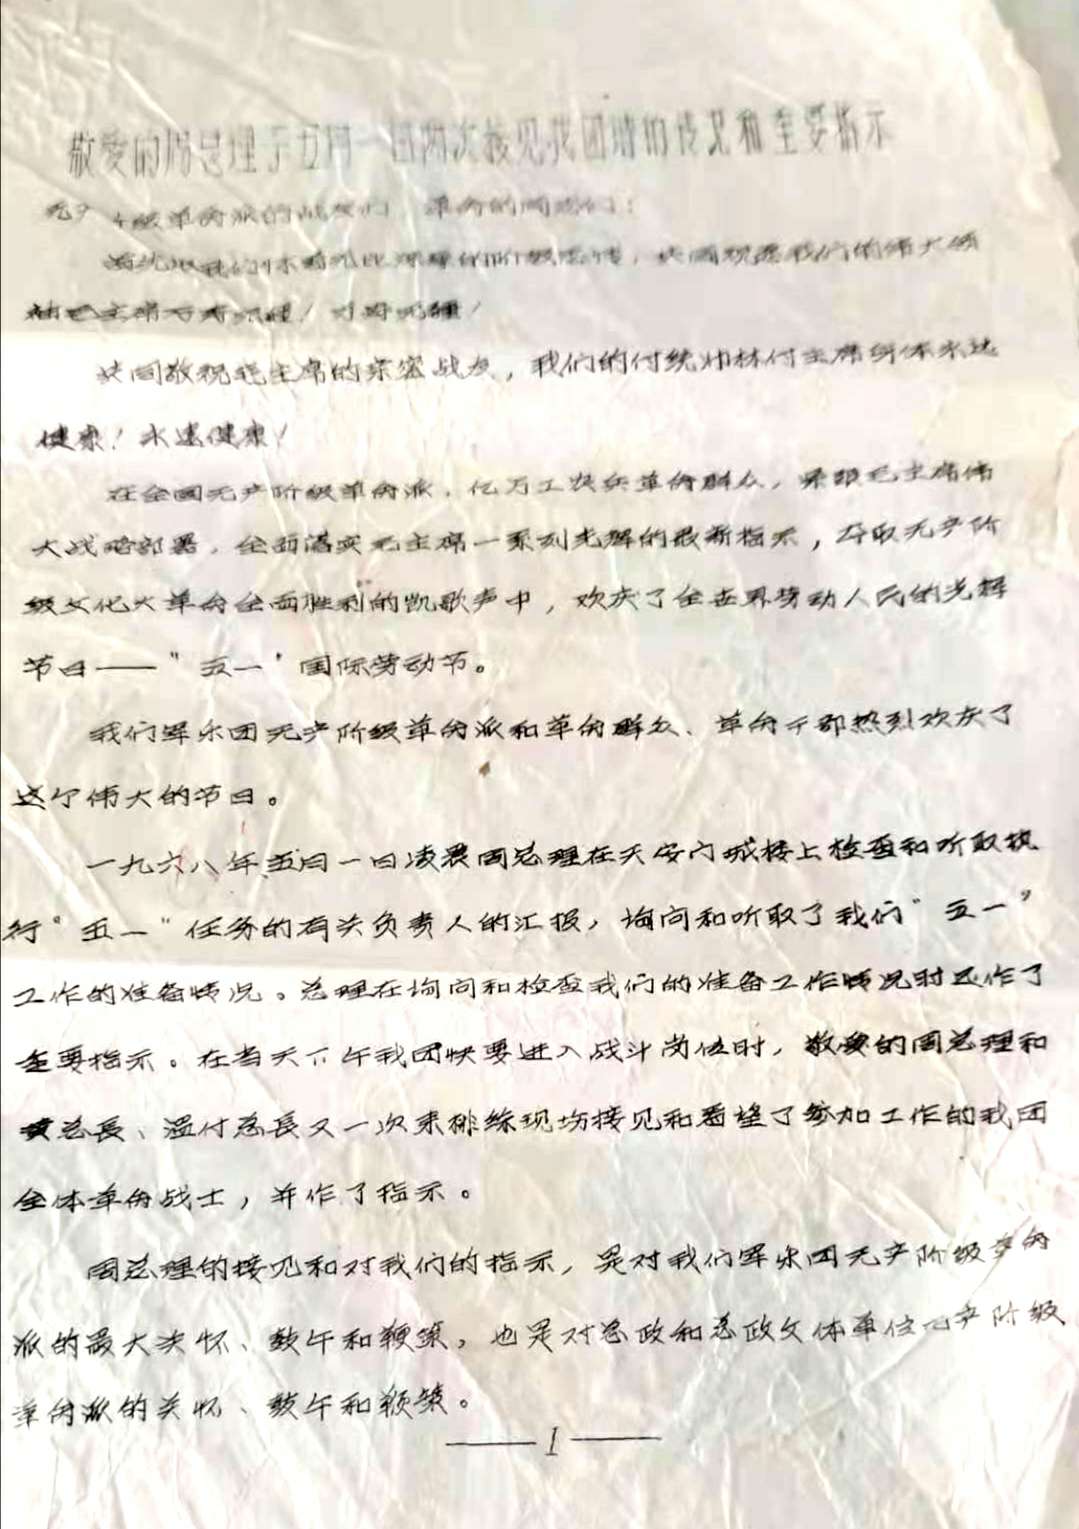 敬爱的周总理于五月一日两次接见我团时的情况和重要指示
无产阶级革命派的战友们、革命的同志们：
首先让我们怀着无比深厚的阶级感情，共同祝愿我们的伟大领
袖毛主席万寿无疆！万寿无疆！
共同敬祝毛主席的亲密战友，我们的付统帅林付主席身体永远
健康！永远健康！
在全国无产阶级革命派，亿万工农兵革命群众，紧跟毛主席伟
大战略部署，全面落实毛主席一系列光辉的最新指示，夺取无产阶
级文化大革命全面胜利的凯歌声中，欢庆了全世界劳动人民的光辉
节日——“五一”国际劳动节。
我们军乐团无产阶级革命派和革命群众、革命干部热烈欢庆了
这个伟大的节日。
一九六八年五月一日凌晨周总理在天安门城楼上检查和听取执
行“五一”任务的有关负责人的汇报，询问和听取了我们“五一”
工作的准备情况。总理在询问和检查我们的准备工作情况时还作了
重要指示。在当天下午我团快要进入战斗岗位时，敬爱的周总理和
黄总長、温付总長又一次来排练现场接见和看望了参加工作的我团
全体革命战士，并作了指示。
周总理的接见和对我们的指示，是对我们军乐团无产阶级革命
派的最大关怀、鼓午和鞭策，也是对总政和总政文体单位无产阶级
革命派的关怀、鼓午和鞭策。
—— 1 ——